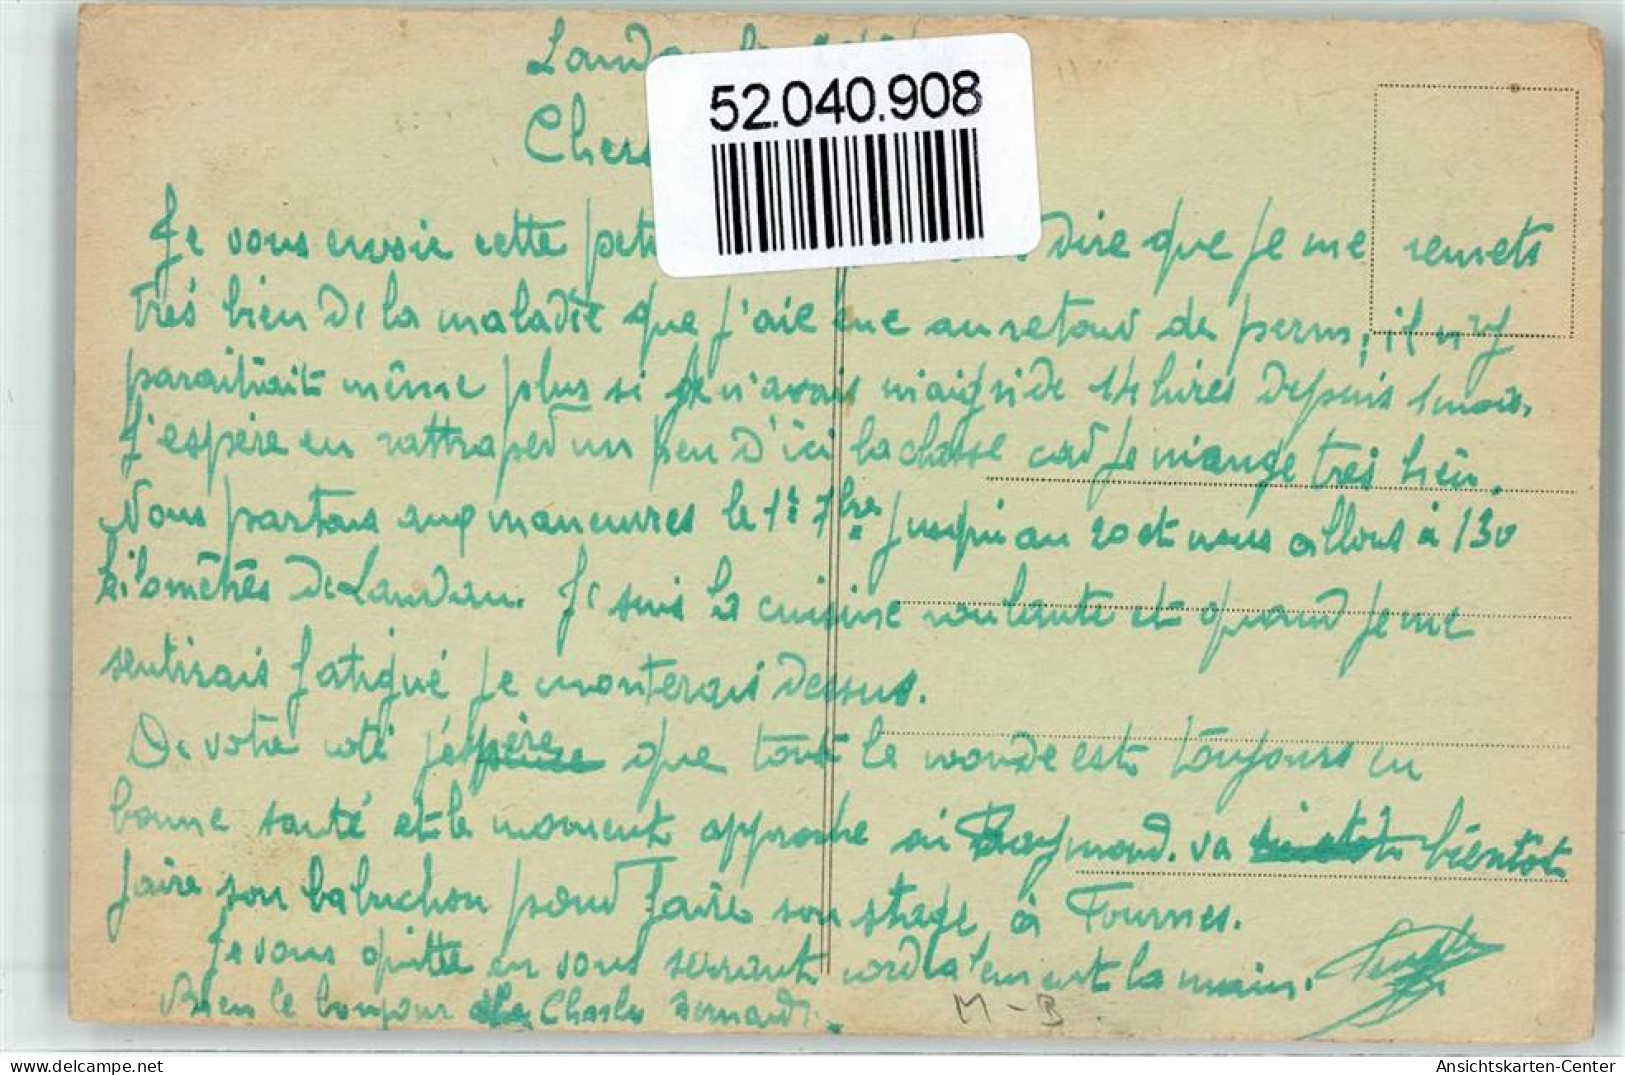 Landau le
52.040.908
Chers
Je vous envoie cette peti dire que je me remets
très bien de la maladie que j'aie eue au retour de perm, il n'y
paraitrait même plus si je n'avais maigri de 14 livres depuis 1 mois.
J'espère en rattraper un peu d'ici la classe car je mange très bien.
Nous partons aux manœuvres le 1er 7bre jusqu'au 20 et nous allons à 130
kilomètrês de Landau. Je suis la cuisine roulante et quand je me
sentirais fatigué je monterais dessus.
De votre coté j'espère que tout le monde est toujours en
bonne santé et le moment approche où Raymond va bientot
faire son baluchon pour faire son stage à Fournes.
Je vous quitte en vous serrant cordialement la main.
Bien le bonjour de Charles Bernard.
M-B.
Ansichtskarten-Center